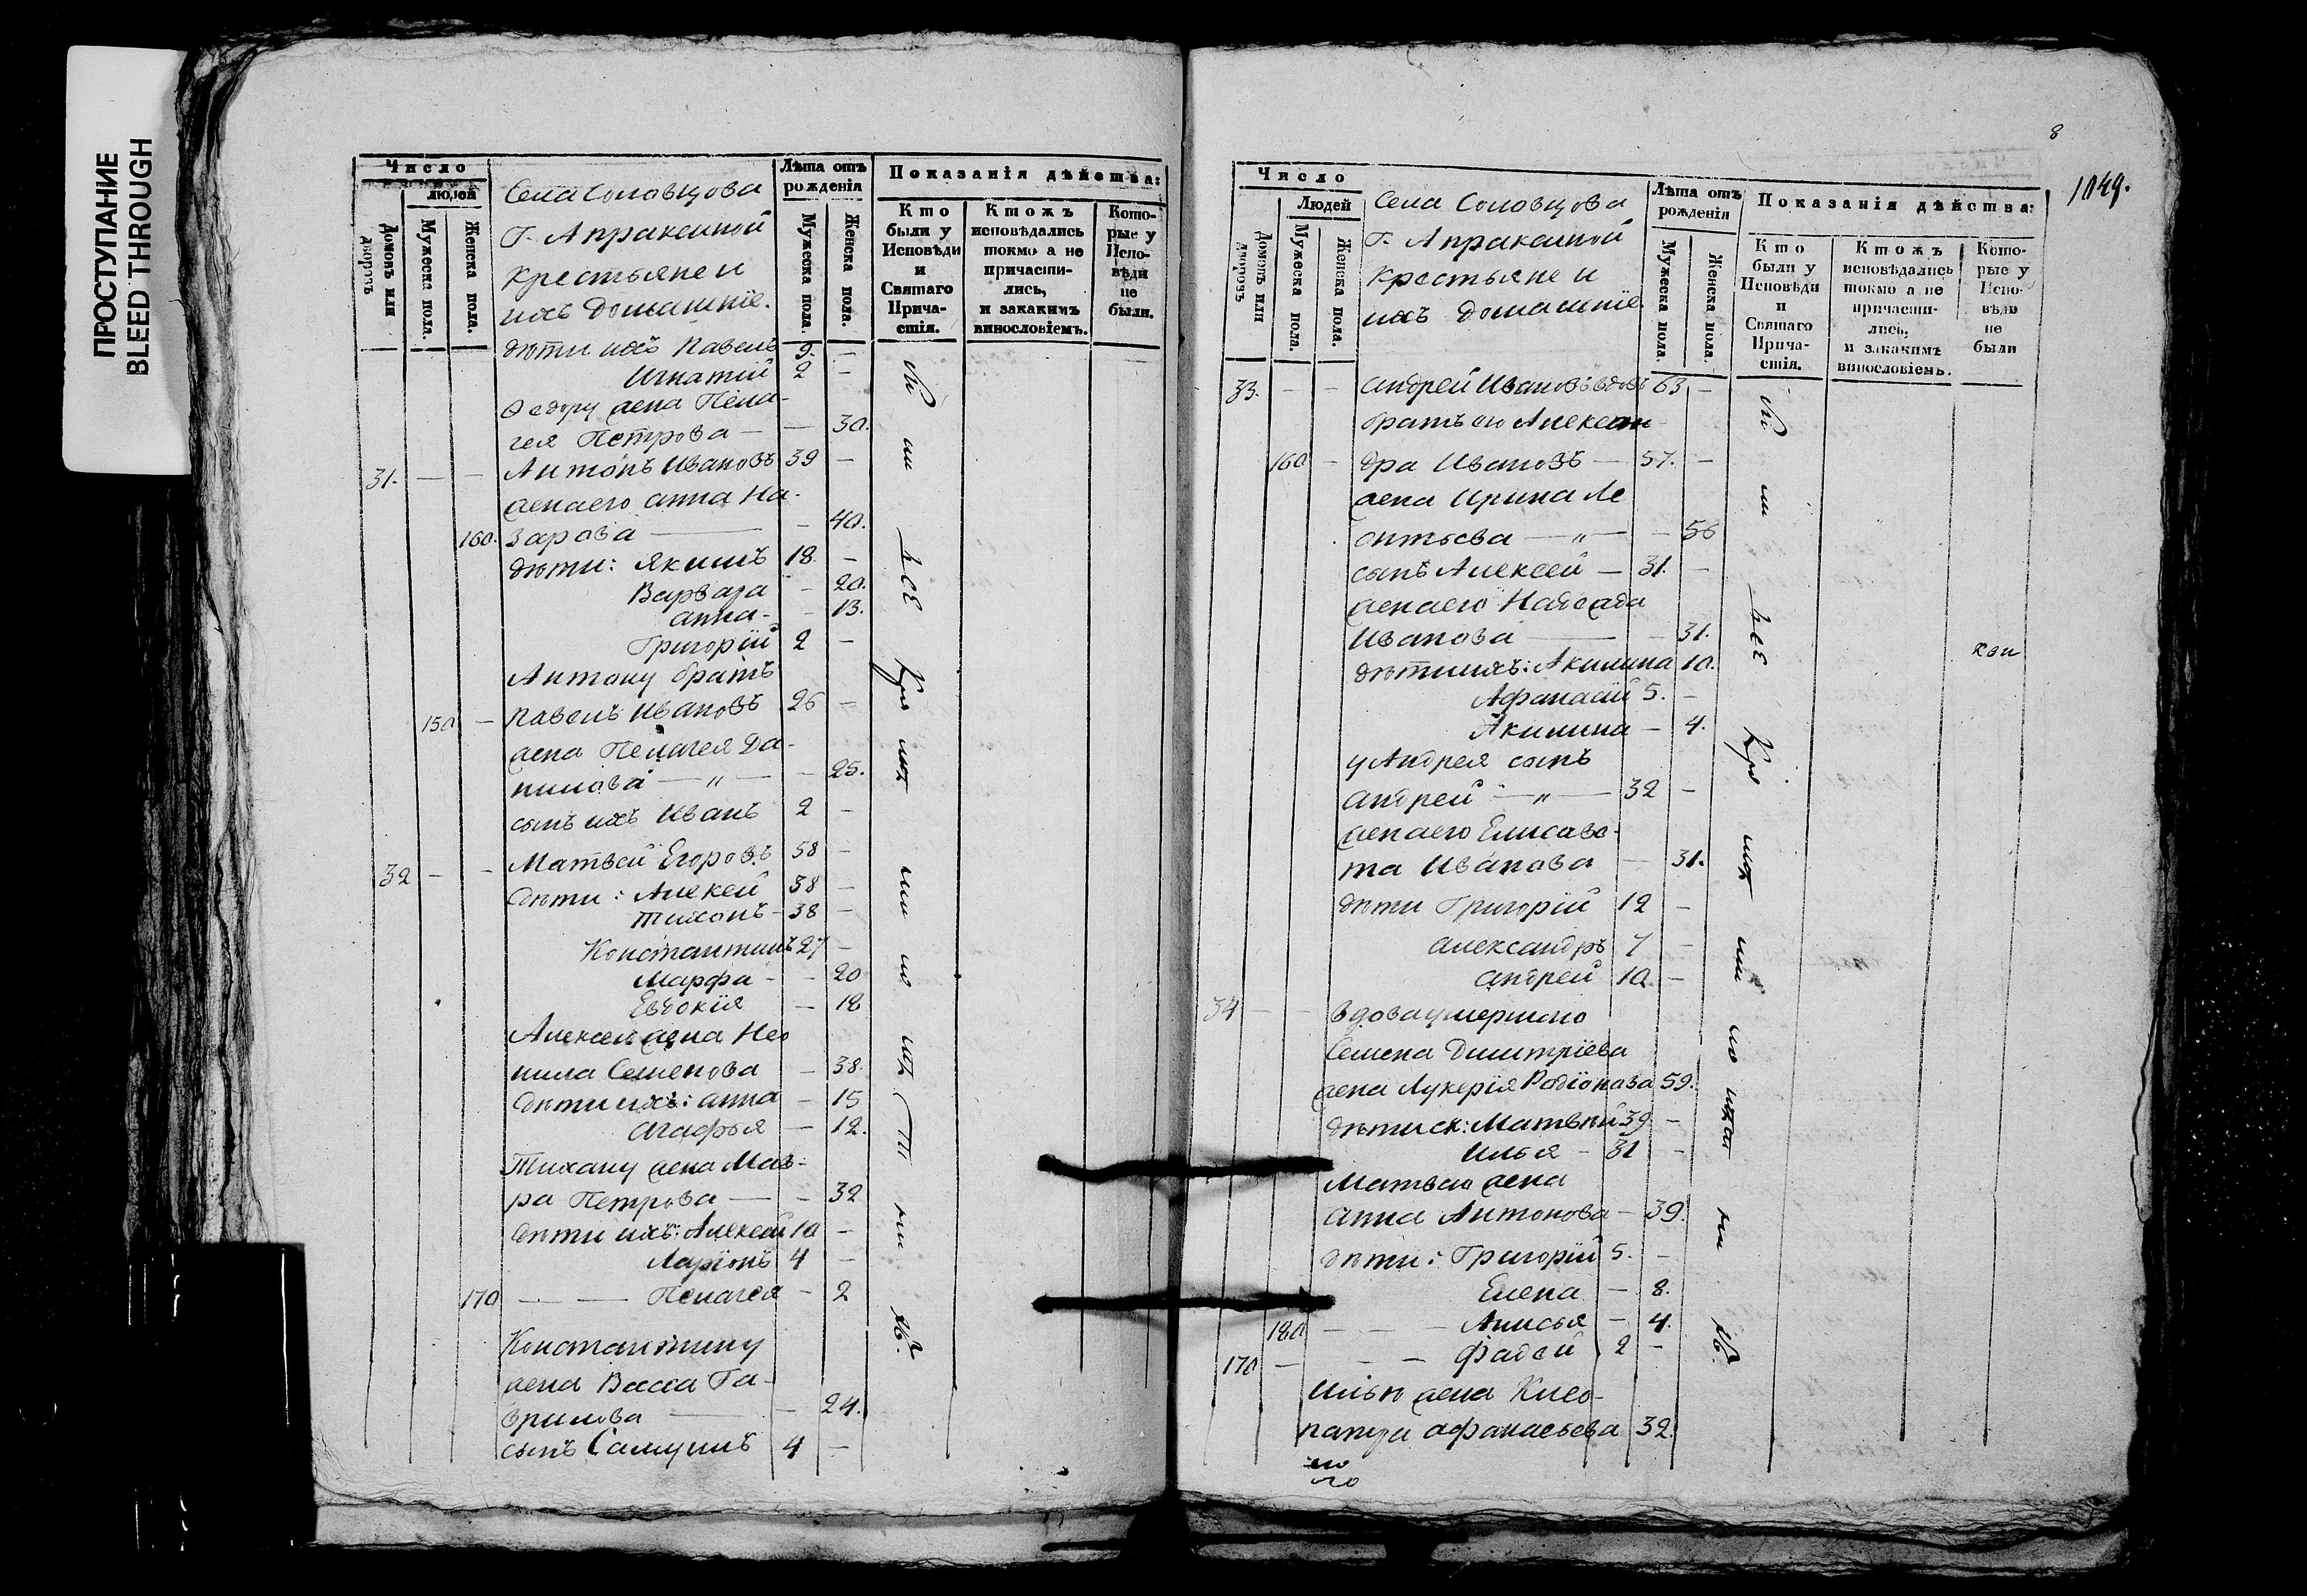 ПРОСТУПАНИЕ
BLEED THROUGH
Число
людей
Домовъ или дворовъ
Мужеска пола.
Женска пола.
Села Соловцова
Г. Апраксиной
крестьяне и
ихъ домашніе.
Лѣта отъ рожденія
Мужеска пола.
Женска пола.
Показанія дѣйства:
Кто были у Исповѣди и Святаго Прича- стія.
Ктожъ исповѣдались токмо а не причасти- лись, и закакимъ винословіемъ.
Кото- рые у Испо- вѣди не были.
дѣти ихъ Павелъ 9. —
Игнатій 2 —
Ѳедору жена Пела-
гея Петрова — — 30.
31. — — Антонъ Ивановъ 39 —
жена его Анна На-
160. зарова — — 40.
дѣти: Якимъ 18. —
Варвара — 20.
Анна — — 13.
Григорій 2 —
Антону братъ
150 — Павелъ Ивановъ 26 —
жена Пелагея Да-
нилова — „ — — 25.
сынъ ихъ Иванъ 2 —
32 — — Матвей Егоровъ 58 —
дѣти: Алекей 38 —
Тихонъ — 38 —
Константинъ 27 —
Марфа — — 20
Евдокія — 18
Алексею жена Нео
нила Семенова — 38.
дѣти ихъ: Анна — 15
Агафья — 12.
Тихону жена Мав-
ра Петрова — — 32
дѣти ихъ: Алексей 10 —
Ларіонъ 4 —
170 — — Пелагея — 2
Константину
жена Васса Га-
врилова — — 24.
сынъ Самуилъ 4 —
8
1049.
Число
Людей
Домовъ или дворовъ
Мужеска пола.
Женска пола.
Села Соловцова
Г. Апраксиной
крестьяне и
ихъ домашніе.
Лѣта отъ рожденія
Мужеска пола.
Женска пола.
Показанія дѣйства:
Кто были у Исповѣди и Святаго Прича- стія.
Ктожъ исповѣдались токмо а не причасти- лись, и закакимъ винословіемъ.
Кото- рые у Испо- вѣди не были
33. — — Андрей Ивановъ вдовъ 63 —
братъ его Алексан
160 — дра Ивановъ — 57. —
жена Ирина Ле
онтьева — „ — — 56
сынъ Алексей — 31. —
жена его Надежда
Иванова — — 31.
дѣти ихъ: Акилина 10.
Афанасій 5. —
Акилина — 4.
у Андрея сынъ
Андрей — „ — 32 —
жена его Елисаве-
та Иванова — 31.
дѣти Григорій 12 —
Александръ 7 —
Андрей 10 —
34 — — вдова умершаго
Семена Димитріева
жена Лукерія Родіонова 59.
дѣти ея: Матвѣй 39 —
Илья — 31 —
Матвею жена
Анна Антонова — 39.
дѣти: Григорій 5. —
Елена — 8.
180 — — — Анисья — 4.
170 — — — Фадей 2 —
Илью жена Клео-
патра Афанасьева 32.